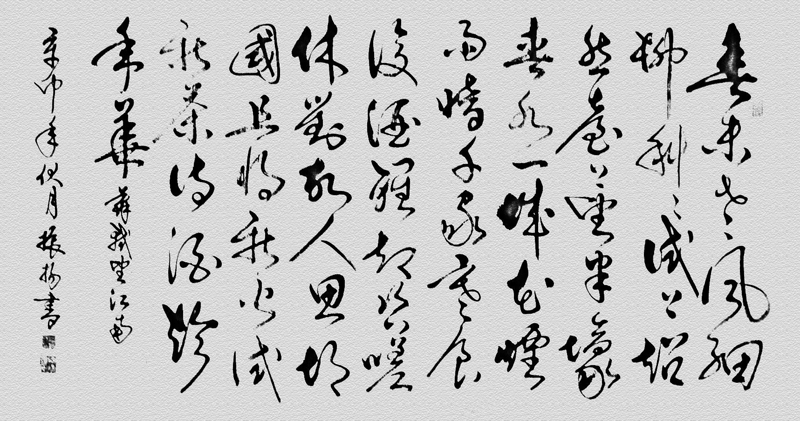 春未老風細
柳斜斜試上超
然臺上望半壕
春水一城花煙
雨暗千家寒食
後酒醒却咨嗟
休對故人思故
國且將新火試
新茶詩酒趁
年華 蘇軾望江南
辛卯年伏月振揚書